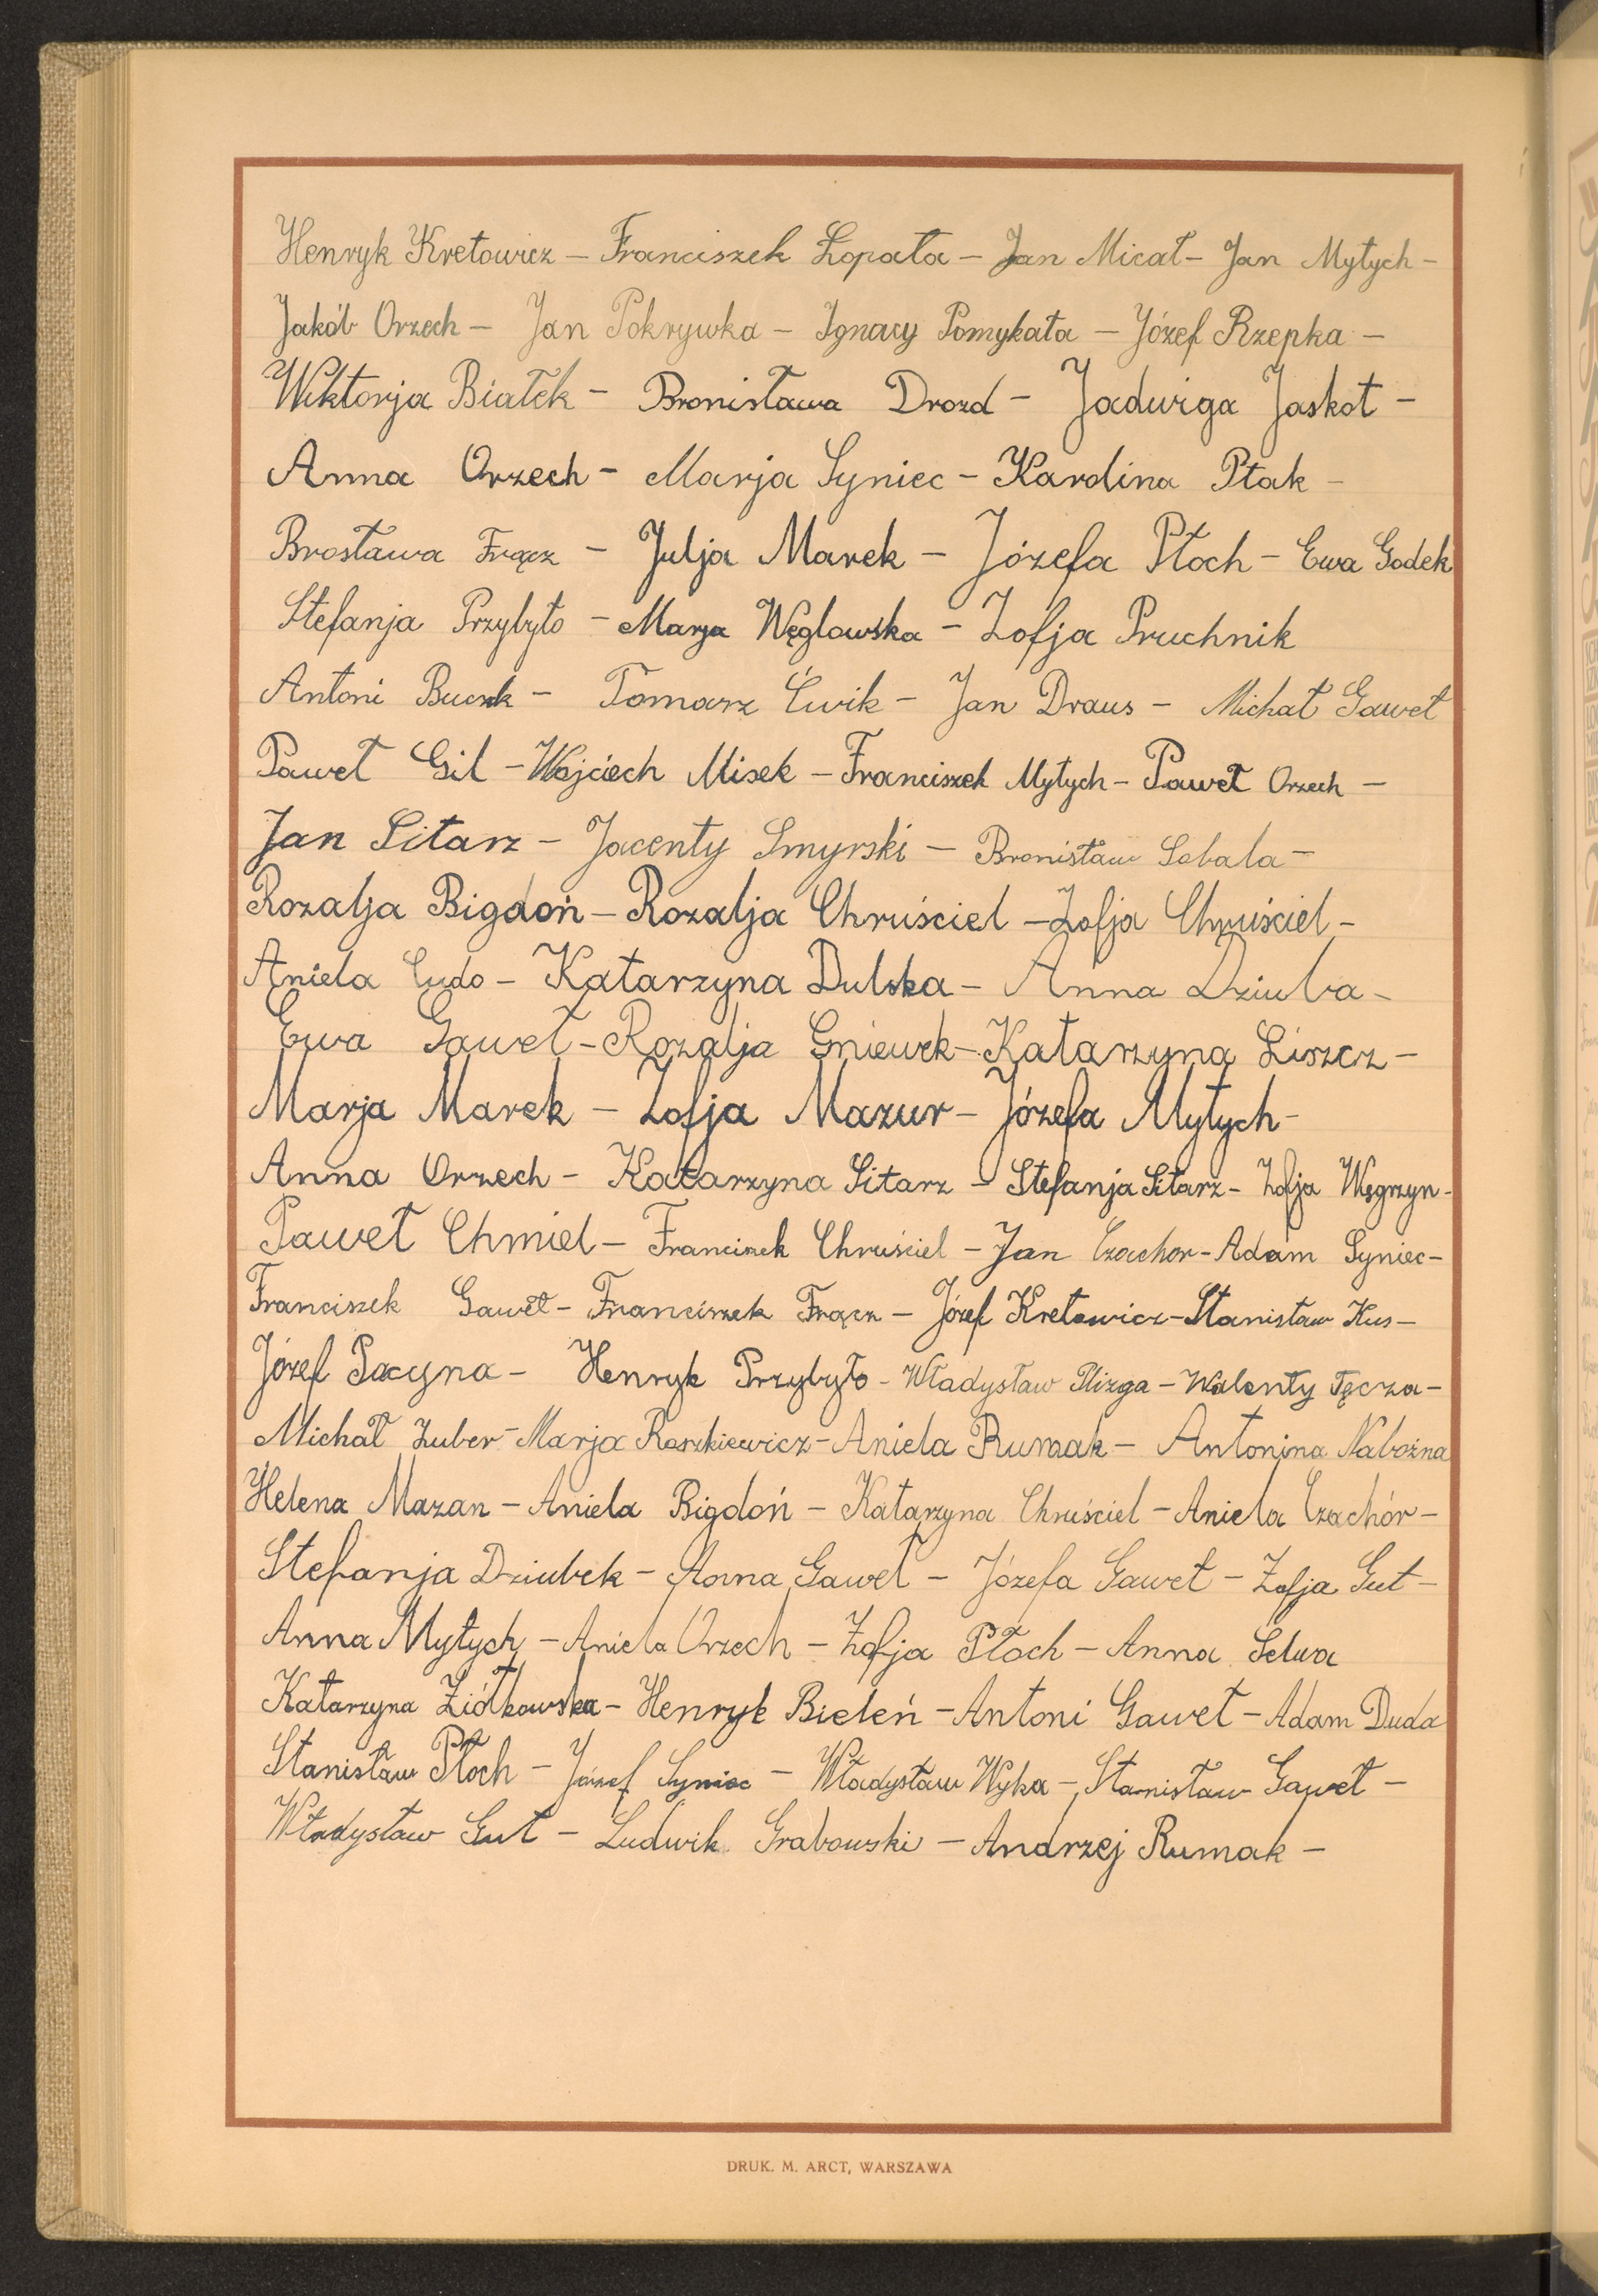 Henryk Kretowicz – Franciszek Łopata – Jan Micał – Jan Mytych –
Jakób Orzech – Jan Pokrywka – Ignacy Pomykała – Józef Rzepka –
Wiktorja Białek – Bronisława Drozd – Jadwiga Jaskot –
Anna Orzech – Marja Syniec – Karolina Ptak –
Brosława Frącz – Julja Marek – Józefa Płoch – Ewa Godek
Stefanja Przybyło – Marja Węglowska – Zofja Pruchnik
Antoni Buczek – Tomasz Ćwik – Jan Draus – Michał Gaweł
Paweł Gil – Wojciech Misek – Franciszek Mytych – Paweł Orzech –
Jan Sitarz – Jacenty Smyrski – Bronisław Sobala –
Rozalja Bigdoń – Rozalja Chruściel – Zofja Chruściel –
Aniela Cudo – Katarzyna Dulska – Anna Dziuba –
Ewa Gaweł – Rozalja Gniewek – Katarzyna Liszcz –
Marja Marek – Zofja Mazur – Józefa Mytych –
Anna Orzech – Katarzyna Sitarz – Stefanja Sitarz – Zofja Węgrzyn –
Paweł Chmiel – Franciszek Chruściel – Jan Czachor – Adam Syniec –
Franciszek Gaweł – Franciszek Frącz – Józef Kretowicz – Stanisław Kus –
Józef Pacyna – Henryk Przybyło – Władysław Plizga – Walenty Tęcza –
Michał Zuber – Marja Raszkiewicz – Aniela Rumak – Antonina Nabożna
Helena Mazan – Aniela Bigdoń – Katarzyna Chruściel – Aniela Czachór –
Stefanja Dziubek – Anna Gaweł – Józefa Gaweł – Zofja Gut –
Anna Mytych – Aniela Orzech – Zofja Płoch – Anna Selwa
Katarzyna Ziółkowska – Henryk Bieleń – Antoni Gaweł – Adam Duda
Stanisław Płoch – Józef Syniec – Władysław Wyka – Stanisław Gaweł –
Władysław Gut – Ludwik Grabowski – Andrzej Rumak –
DRUK. M. ARCT, WARSZAWA